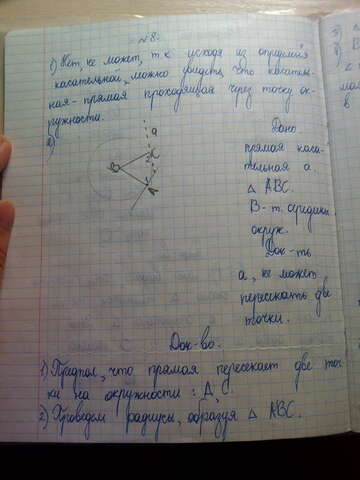 №8.
1) Нет, не может, т к исходя из определ-я
касательной, можно увидеть, что касатель-
ная - прямая проходящая через точку ок-
ружности.
2)
a
B
C
A
Дано
прямая каса-
тельная a.
△ ABC.
B - т. середины
окруж.
Док-ть
a, не может
пересекать две
точки.
Док-во.
1) Предпол, что прямая пересекает две точ
ки на окружности: A, C.
2) Проведем радиусы, образуя △ ABC.